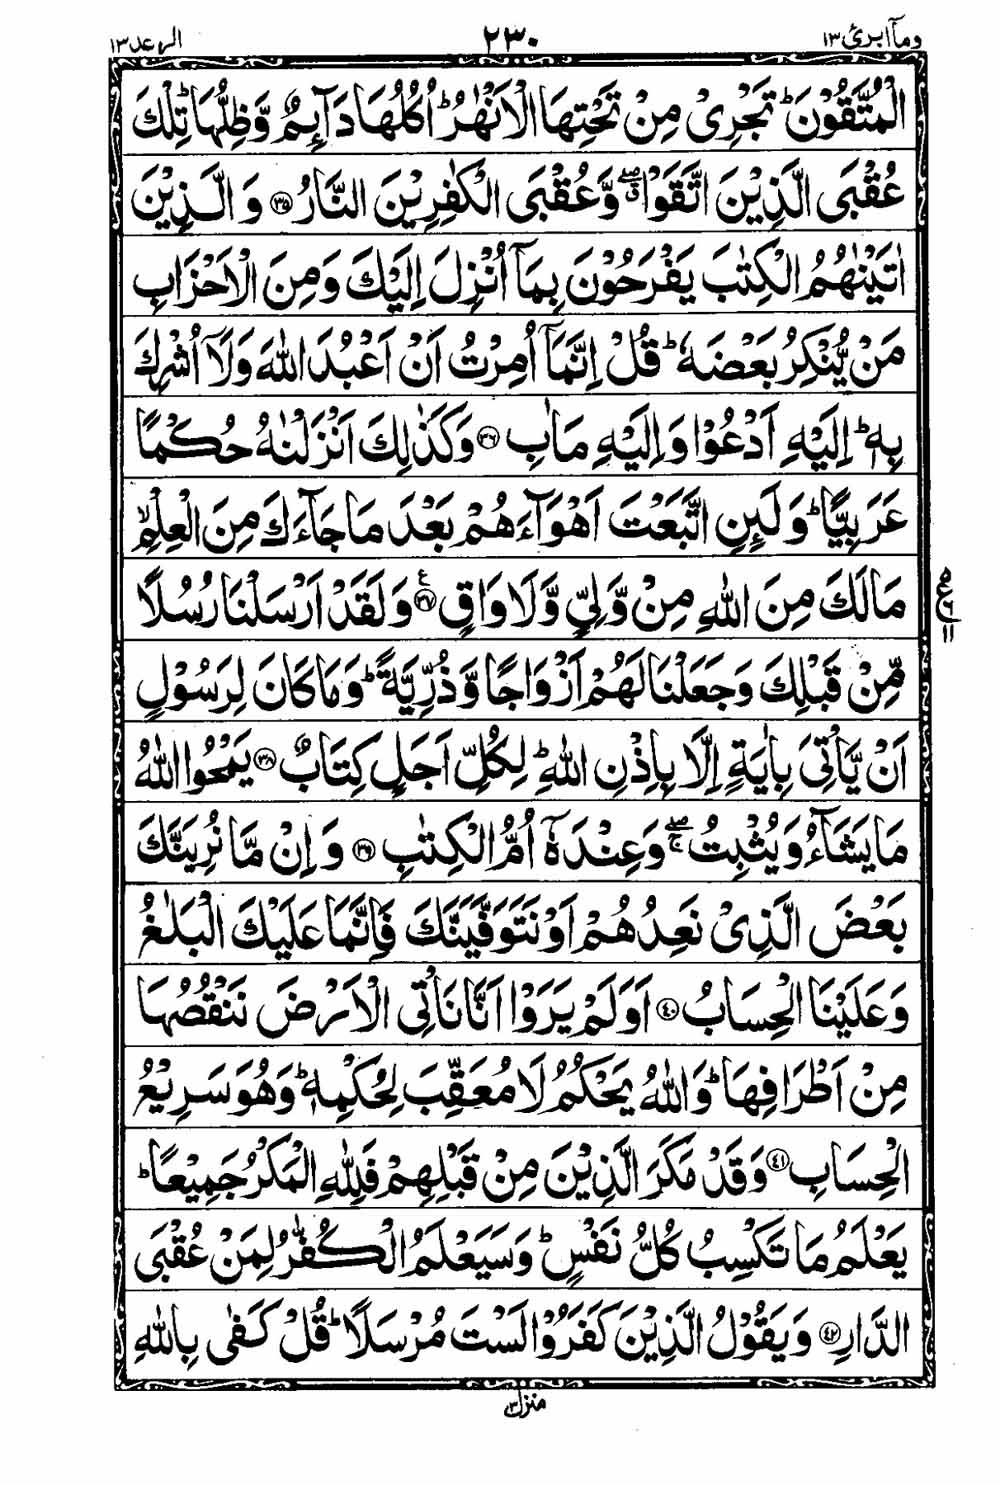 وما ابرئ ١٣ ٢٣٠ الرعد ١٣
الْمُتَّقُوْنَ ؕ تَجْرِیْ مِنْ تَحْتِهَا الْاَنْهٰرُ ؕ اُكُلُهَا دَآىِٕمٌ وَّظِلُّهَا ؕ تِلْكَ
عُقْبَی الَّذِیْنَ اتَّقَوْا ۖۗ وَّعُقْبَی الْكٰفِرِیْنَ النَّارُ ﴿۳۵﴾ وَالَّذِیْنَ
اٰتَیْنٰهُمُ الْكِتٰبَ یَفْرَحُوْنَ بِمَاۤ اُنْزِلَ اِلَیْكَ وَمِنَ الْاَحْزَابِ
مَنْ یُّنْكِرُ بَعْضَهٗ ؕ قُلْ اِنَّمَاۤ اُمِرْتُ اَنْ اَعْبُدَ اللّٰهَ وَلَاۤ اُشْرِكَ
بِهٖ ؕ اِلَیْهِ اَدْعُوْا وَاِلَیْهِ مَاٰبِ ﴿۳۶﴾ وَكَذٰلِكَ اَنْزَلْنٰهُ حُكْمًا
عَرَبِیًّا ؕ وَلَىِٕنِ اتَّبَعْتَ اَهْوَآءَهُمْ بَعْدَ مَا جَآءَكَ مِنَ الْعِلْمِ ۙ
مَا لَكَ مِنَ اللّٰهِ مِنْ وَّلِیٍّ وَّلَا وَاقٍ ﴿۳۷﴾ ع وَلَقَدْ اَرْسَلْنَا رُسُلًا
مِّنْ قَبْلِكَ وَجَعَلْنَا لَهُمْ اَزْوَاجًا وَّذُرِّیَّةً ؕ وَمَا كَانَ لِرَسُوْلٍ
اَنْ یَّاْتِیَ بِاٰیَةٍ اِلَّا بِاِذْنِ اللّٰهِ ؕ لِكُلِّ اَجَلٍ كِتَابٌ ﴿۳۸﴾ یَمْحُوا اللّٰهُ
مَا یَشَآءُ وَیُثْبِتُ ۖۚ وَعِنْدَهٗۤ اُمُّ الْكِتٰبِ ﴿۳۹﴾ وَاِنْ مَّا نُرِیَنَّكَ
بَعْضَ الَّذِیْ نَعِدُهُمْ اَوْ نَتَوَفَّیَنَّكَ فَاِنَّمَا عَلَیْكَ الْبَلٰغُ
وَعَلَیْنَا الْحِسَابُ ﴿۴۰﴾ اَوَلَمْ یَرَوْا اَنَّا نَاْتِی الْاَرْضَ نَنْقُصُهَا
مِنْ اَطْرَافِهَا ؕ وَاللّٰهُ یَحْكُمُ لَا مُعَقِّبَ لِحُكْمِهٖ ؕ وَهُوَ سَرِیْعُ
الْحِسَابِ ﴿۴۱﴾ وَقَدْ مَكَرَ الَّذِیْنَ مِنْ قَبْلِهِمْ فَلِلّٰهِ الْمَكْرُ جَمِیْعًا ؕ
یَعْلَمُ مَا تَكْسِبُ كُلُّ نَفْسٍ ؕ وَسَیَعْلَمُ الْكُفّٰرُ لِمَنْ عُقْبَی
الدَّارِ ﴿۴۲﴾ وَیَقُوْلُ الَّذِیْنَ كَفَرُوْا لَسْتَ مُرْسَلًا ؕ قُلْ كَفٰی بِاللّٰهِ
منزل ٣